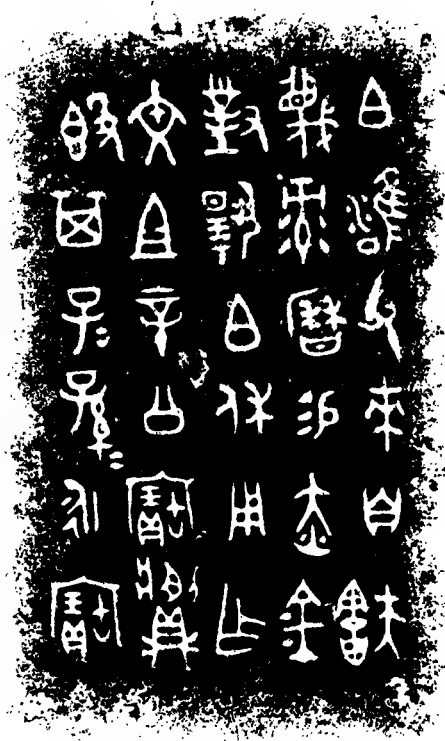 白雝父來自㝬
蔑彔曆易赤金
對揚白休用乍
文且辛公寶𩰫
𣪘其子=孫=永寶